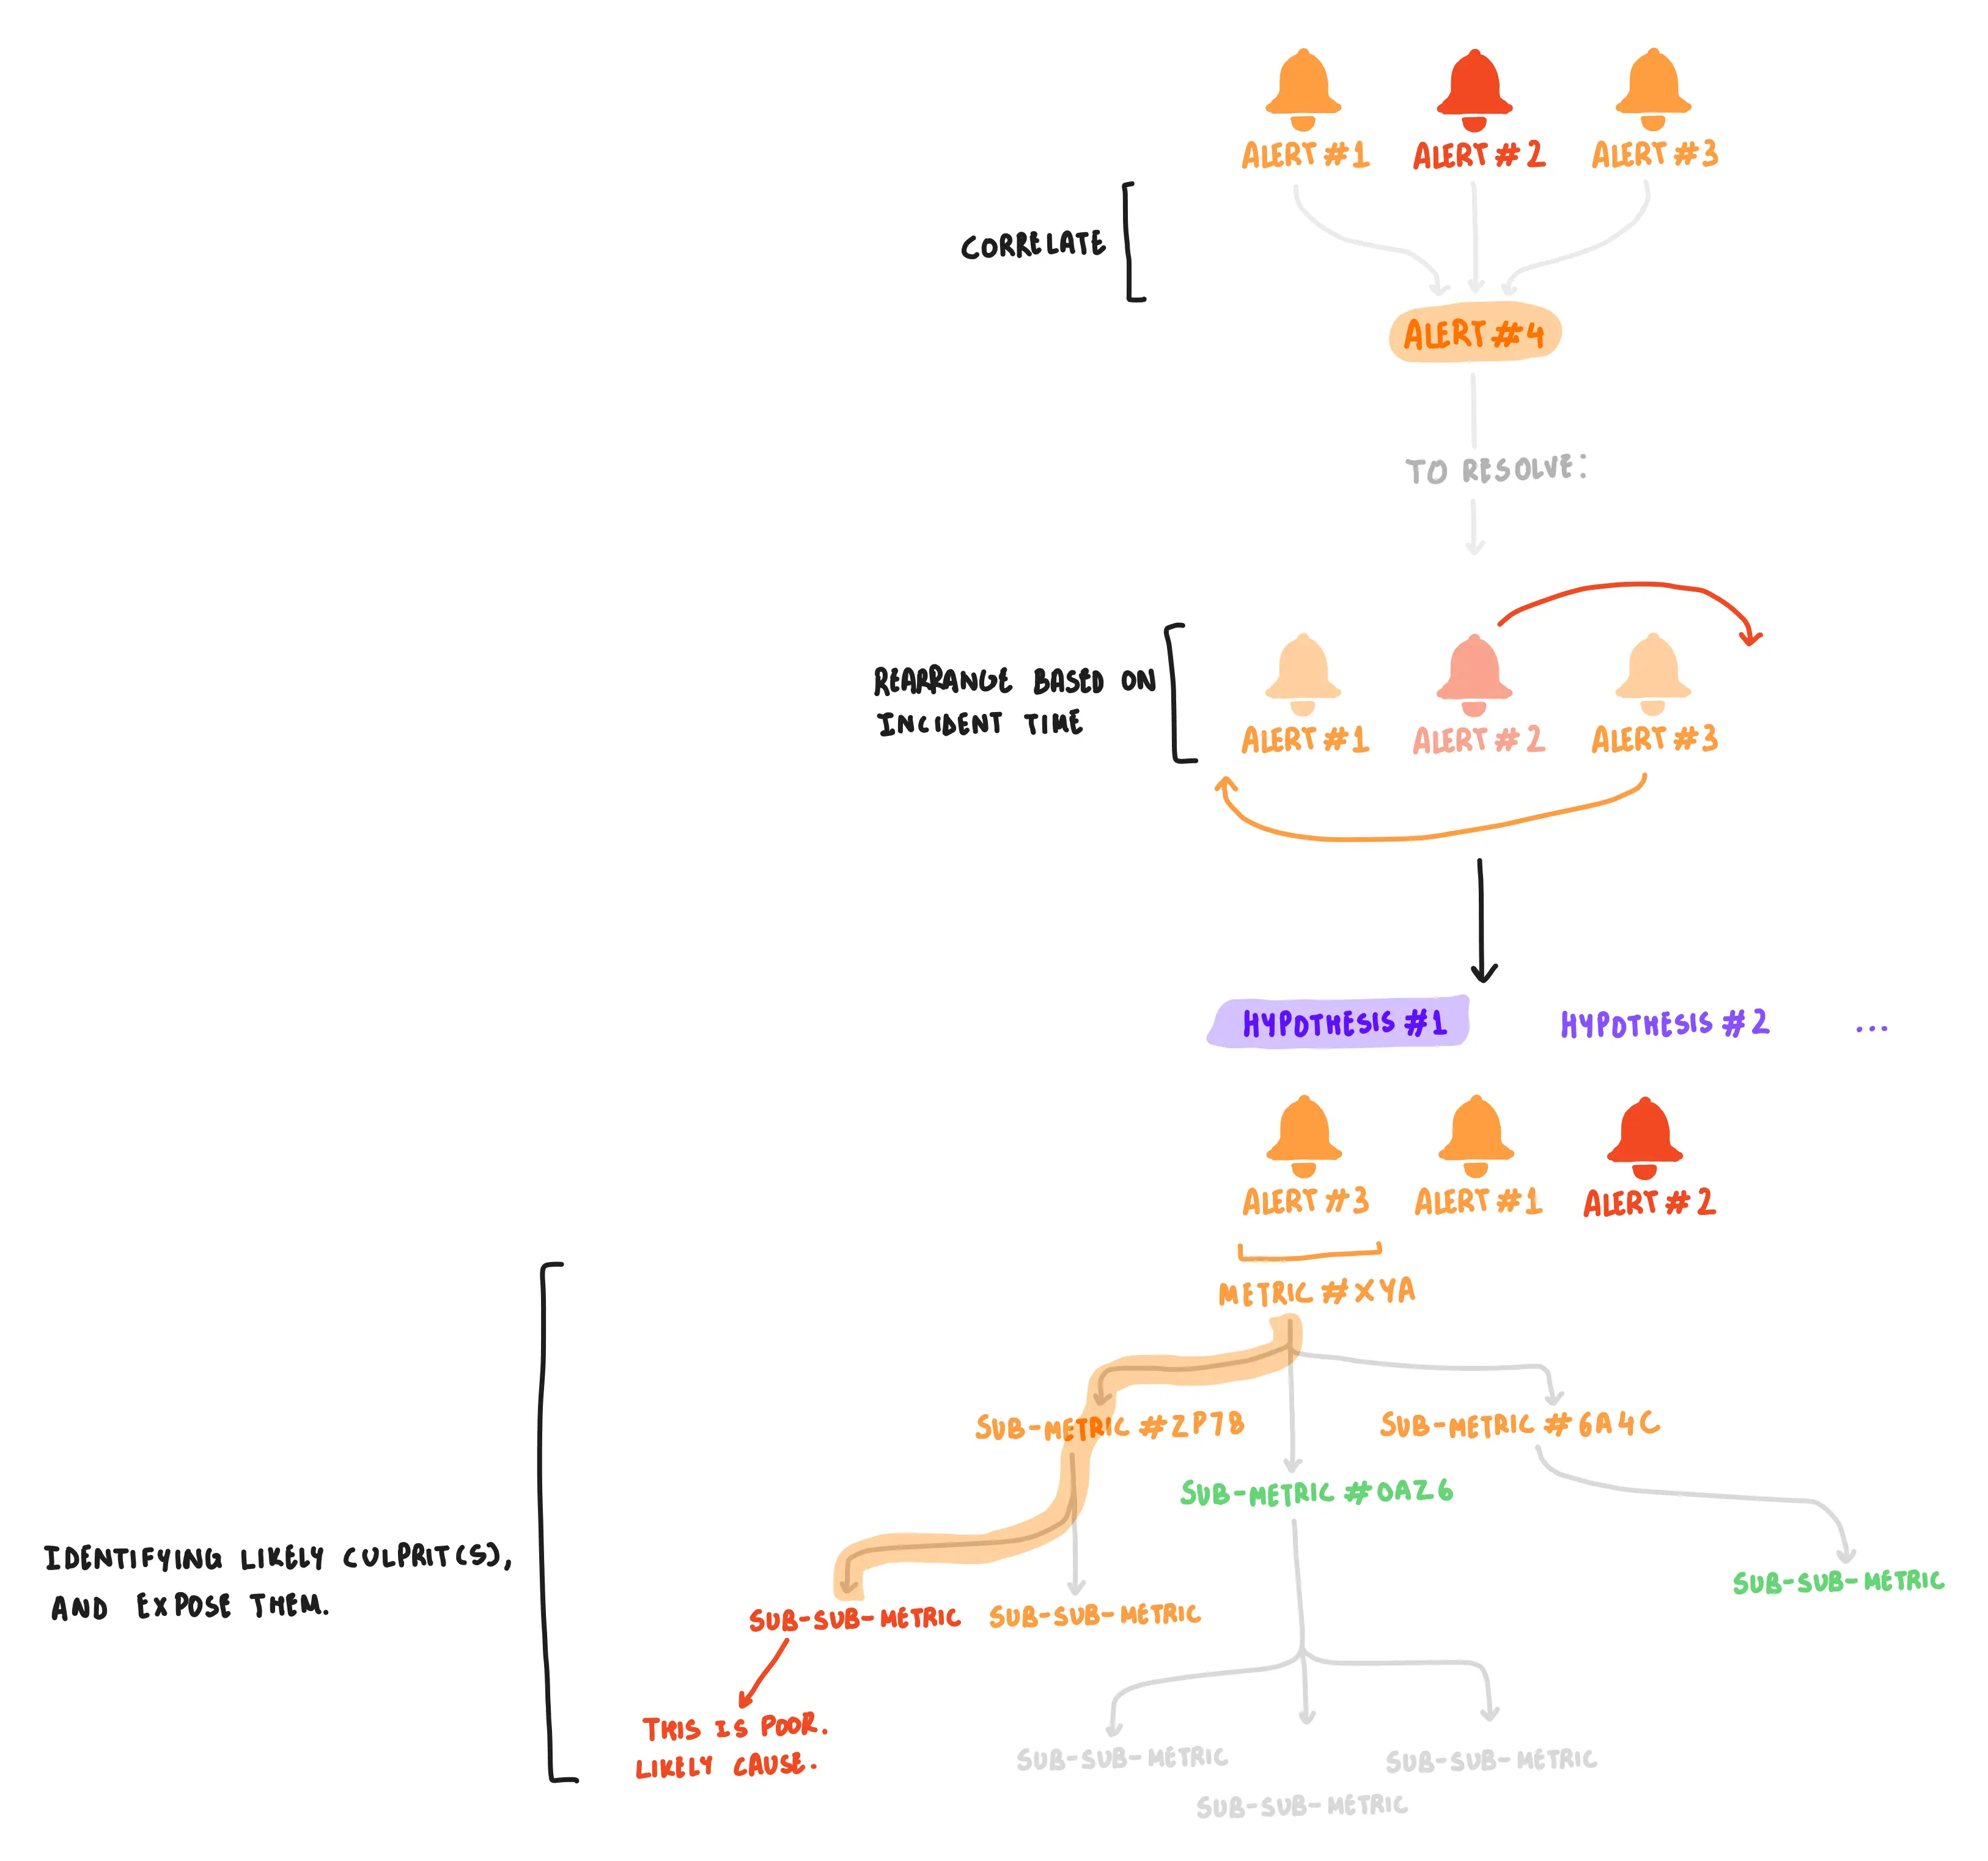 ALERT #1
ALERT #2
ALERT #3
CORRELATE
ALERT #4
TO RESOLVE:
REARRANGE BASED ON
INCIDENT TIME
ALERT #1
ALERT #2
ALERT #3
HYPOTHESIS #1
HYPOTHESIS #2
...
ALERT #3
ALERT #1
ALERT #2
METRIC #XYA
SUB-METRIC #2P78
SUB-METRIC #6A4C
SUB-METRIC #0AZ6
IDENTIFYING LIKELY CULPRIT(S),
AND EXPOSE THEM.
SUB-SUB-METRIC
SUB-SUB-METRIC
SUB-SUB-METRIC
THIS IS POOR.
LIKELY CAUSE.
SUB-SUB-METRIC
SUB-SUB-METRIC
SUB-SUB-METRIC